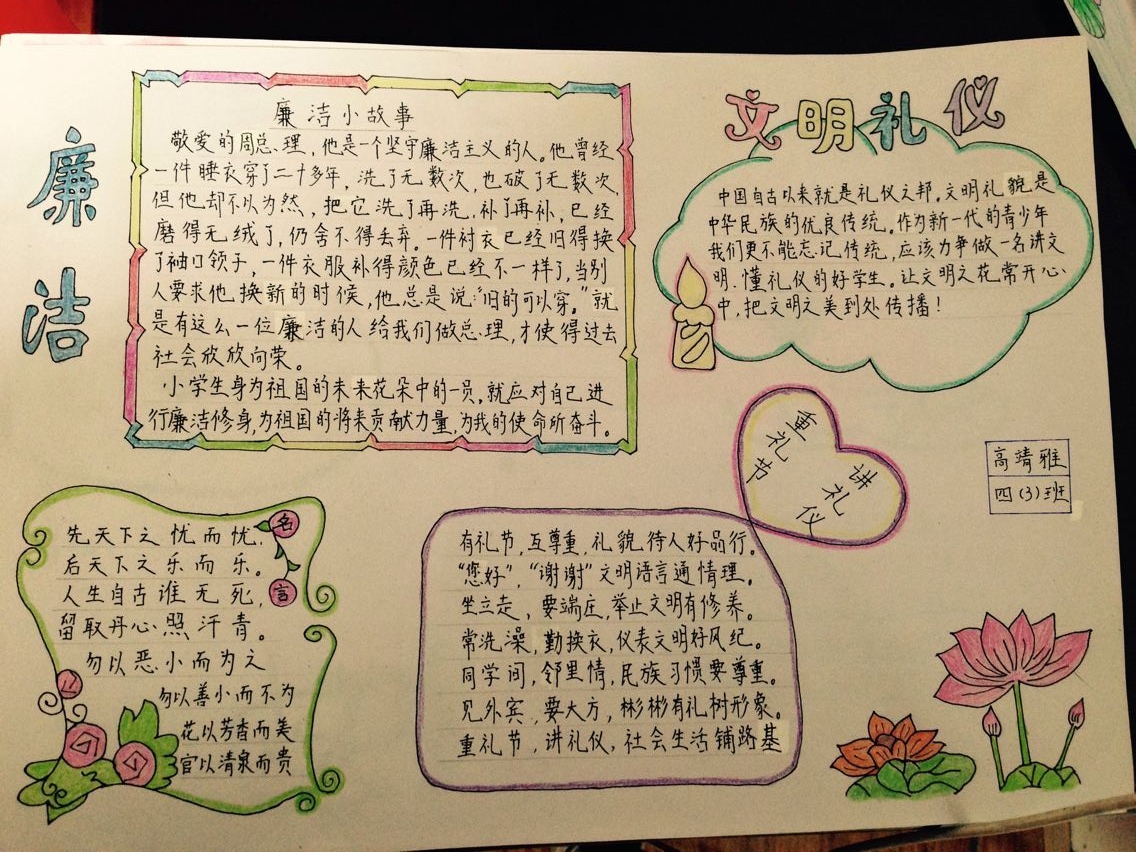 廉洁
廉洁小故事
敬爱的周总理，他是一个坚守廉洁主义的人。他曾经
一件睡衣穿了二十多年，洗了无数次，也破了无数次，
但他却不以为然，把它洗了再洗，补了再补，已经
磨得无绒了，仍舍不得丢弃。一件衬衣已经旧得换
了袖口领子，一件衣服补得颜色已经不一样了，当别
人要求他换新的时候，他总是说："旧的可以穿。"就
是有这么一位廉洁的人给我们做总理，才使得过去
社会欣欣向荣。
小学生身为祖国的未来花朵中的一员，就应对自己进
行廉洁修身，为祖国的将来贡献力量，为我的使命所奋斗。
文明礼仪
中国自古以来就是礼仪之邦。文明礼貌是
中华民族的优良传统。作为新一代的青少年
我们更不能忘记传统，应该力争做一名讲文
明、懂礼仪的好学生。让文明之花常开心
中，把文明之美到处传播！
重礼节
讲礼仪
高靖雅
四(3)班
名言
先天下之忧而忧，
后天下之乐而乐。
人生自古谁无死，
留取丹心照汗青。
勿以恶小而为之
勿以善小而不为
花以芳香而美
官以清泉而贵
有礼节，互尊重，礼貌待人好品行。
"您好"，"谢谢"文明语言通情理。
坐立走，要端庄，举止文明有修养。
常洗澡，勤换衣，仪表文明好风纪。
同学间，邻里情，民族习惯要尊重。
见外宾，要大方，彬彬有礼树形象。
重礼节，讲礼仪，社会生活铺路基